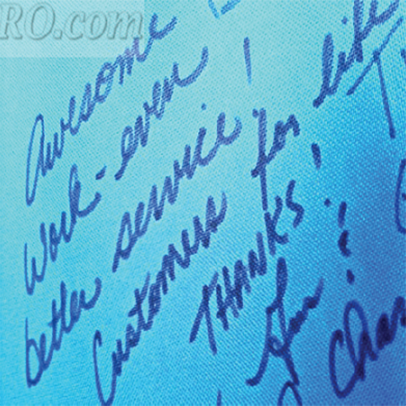 RO.com
Awesome
Work - even
better service!
Customers for life
THANKS!